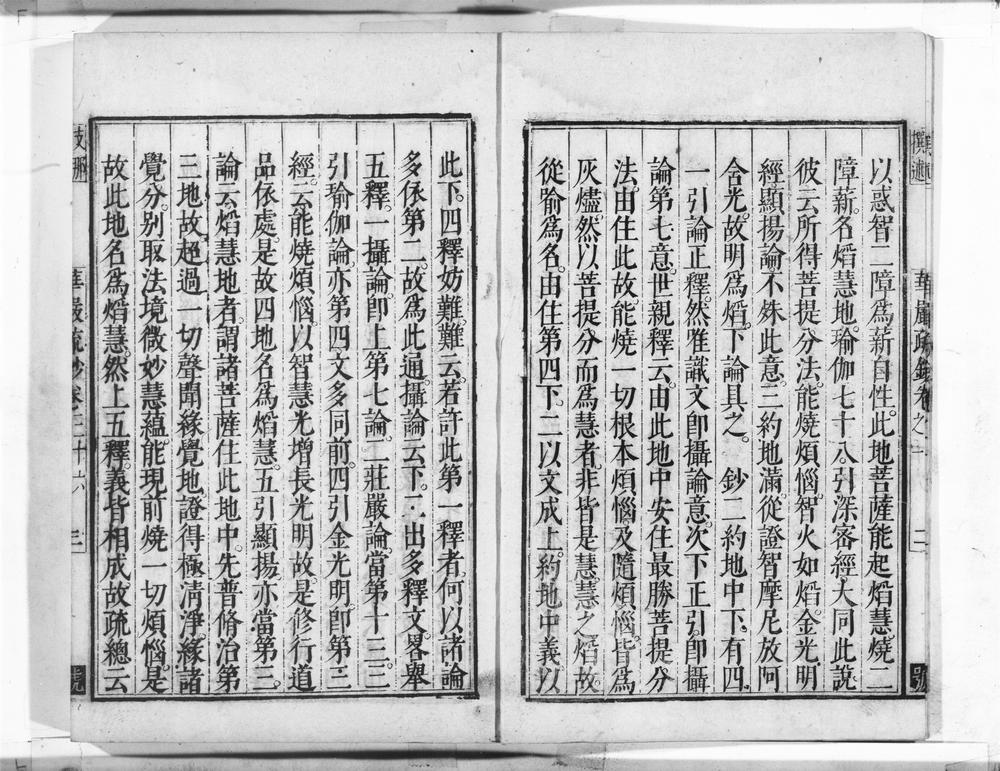 以惑智二障爲薪自性此地菩薩能起焰慧燒二
障薪名焰慧地瑜伽七十八引深密經大同此說
彼云所得菩提分法能燒煩惱智火如焰金光明
經顯揚論不殊此意三約地滿從證智摩尼放阿
含光故明爲焰下論具之 鈔二約地中下有四
一引論正釋然唯識文卽攝論意次下正引卽攝
論第七意世親釋云由此地中安住最勝菩提分
法由住此故能燒一切根本煩惱及隨煩惱皆爲
灰燼然以菩提分而爲慧者非皆是慧慧之焰故
從喻爲名由住第四下二以文成上約地中義以
此下四釋妨難難云若許此第一釋者何以諸論
多依第二故爲此通攝論云下二出多釋文畧舉
五釋一攝論卽上第七論二莊嚴論當第十三三
引瑜伽論亦第四文多同前四引金光明卽第三
經云能燒煩惱以智慧光增長光明故是修行道
品依處是故四地名爲焰慧五引顯揚亦當第三
論云焰慧地者謂諸菩薩住此地中先普脩治第
三地故超過一切聲聞緣覺地證得極淸淨緣諸
覺分别取法境微妙慧蘊能現前燒一切煩惱是
故此地名爲焰慧然上五釋義皆相成故疏總云
華嚴疏鈔卷三十六
三